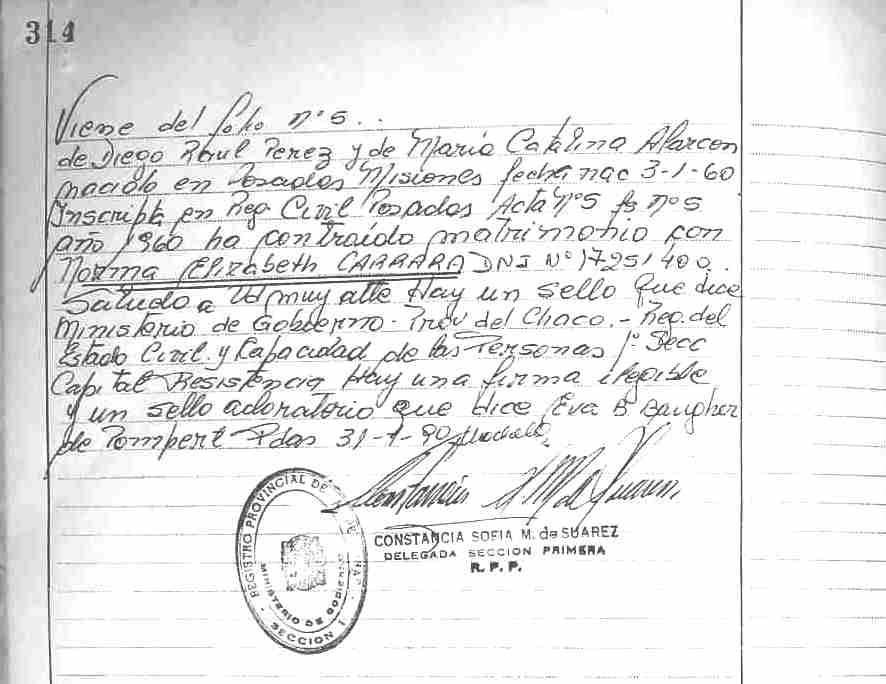 314
Viene del folio nº 5.
de Diego Raul Perez y de Maria Catalina Alarcon
nacido en Posadas Misiones fecha nac 3-1-60
Inscripta en Reg. Civil Posadas Acta nº 5 fs nº 5
año 1960 ha contraido matrimonio con
Norma Elizabeth CARRARA DNI Nº 17251400.
Saludo a Ud muy atte Hay un sello que dice
Ministerio de Gobierno - Prov del Chaco. - Reg. del
Estado Civil y Capacidad de las Personas 1º Secc
Capital Resistencia Hay una firma ilegible
y un sello adoratorio que dice Eva B Baugher
de Pompert Pdas 31-7-90
CONSTANCIA SOFIA M. de SUAREZ
DELEGADA SECCION PRIMERA
R. P. P.
REGISTRO PROVINCIAL DE
MINISTERIO DE GOBIERNO
SECCION 1